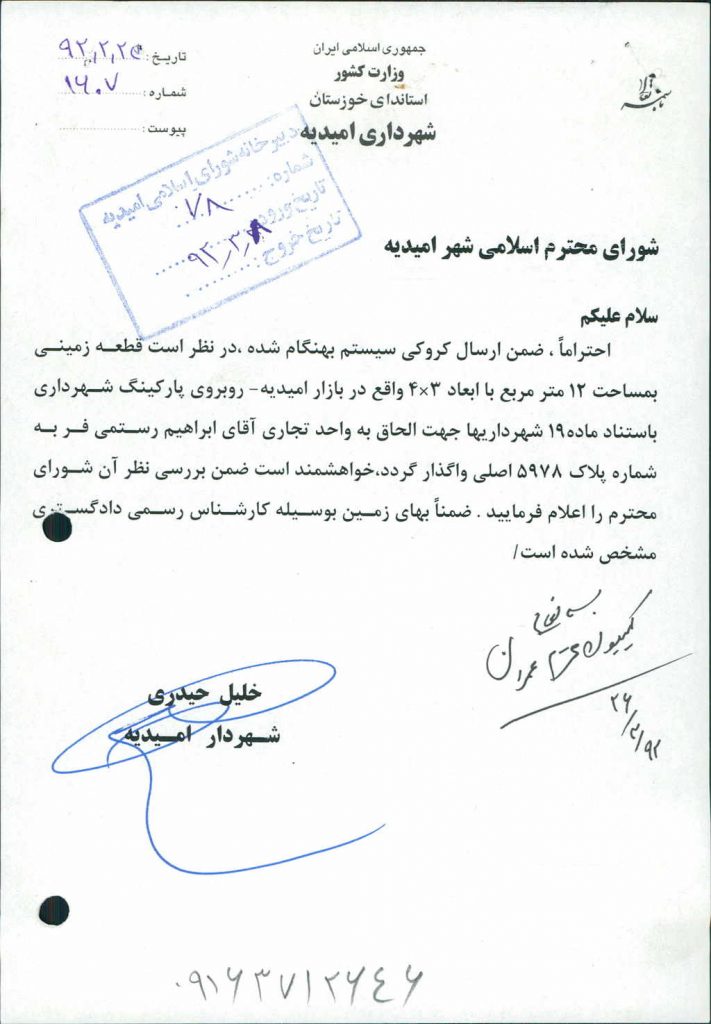 جمهوری اسلامی ایران
وزارت کشور
استاندای خوزستان
شهرداری امیدیه
تاریخ:
شماره: ۱۶۰۷
پیوست:
دبیرخانه شورای اسلامی امیدیه
شماره: ۷۸
تاریخ ورود:
تاریخ خروج:
شورای محترم اسلامی شهر امیدیه
سلام علیکم
احتراماً ، ضمن ارسال کروکی سیستم بهنگام شده ،در نظر است قطعه زمینی
بمساحت ۱۲ متر مربع با ابعاد ۳×۴ واقع در بازار امیدیه- روبروی پارکینگ شهرداری
باستناد ماده۱۹ شهرداریها جهت الحاق به واحد تجاری آقای ابراهیم رستمی فر به
شماره پلاک ۵۹۷۸ اصلی واگذار گردد،خواهشمند است ضمن بررسی نظر آن شورای
محترم را اعلام فرمایید . ضمناً بهای زمین بوسیله کارشناس رسمی دادگستری
مشخص شده است/
کمیسیون محترم عمران
خلیل حیدری
شهردار امیدیه
۰۹۱۶۳۷۱۲۶۴۶